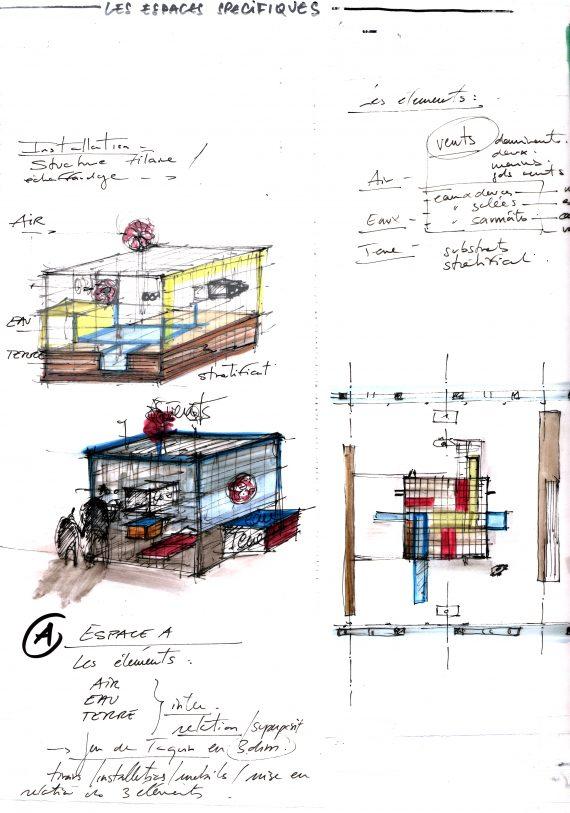 LES ESPACES SPECIFIQUES
Installation
Structure Filaire /
échaffaudage
AIR
EAU
TERRE
stratificat°
vents
Terre
A ESPACE A
Les éléments :
AIR
EAU
TERRE
inter
relation / superposit°
→ Jeu de Taquin en 3 dim.
/ installations / mobile / mise en
relation des 3 éléments.
Les éléments :
vents dominants.
doux.
marins.
gds vents
Air -
eaux douces
" salées
Eaux - " saumât.
Terre - substrats
stratificat°.